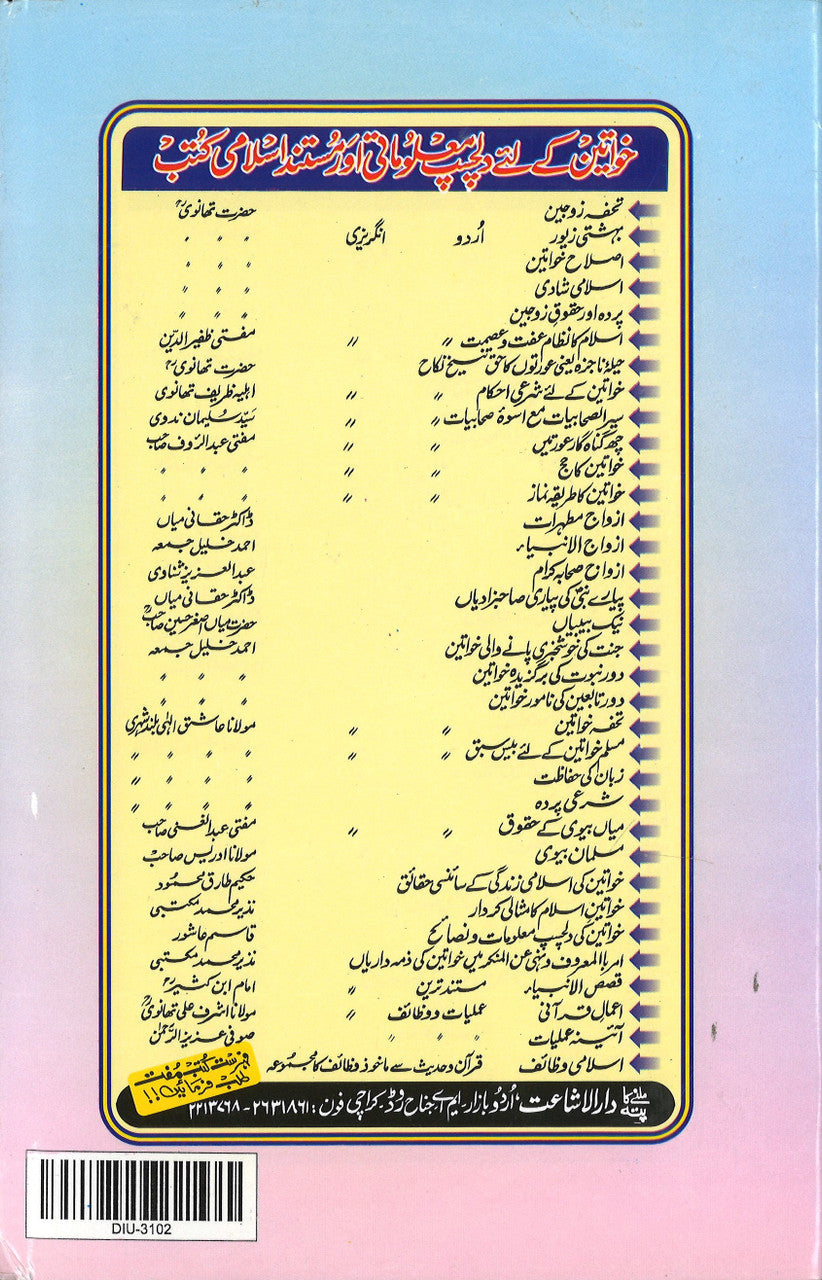 خواتین کے لئے دلچسپ معلوماتی اور مستند اسلامی کتب
تحفہ زوجین حضرت تھانویؒ
بہشتی زیور اردو انگریزی 〃 〃 〃
اصلاح خواتین 〃 〃 〃
اسلامی شادی 〃 〃 〃
پردہ اور حقوق زوجین 〃 〃 〃
اسلام کا نظام عفت و عصمت 〃 〃 مفتی ظفیر الدین
حیلۂ ناجزہ یعنی عورتوں کا حق تنسیخ نکاح حضرت تھانویؒ
خواتین کے لئے شرعی احکام 〃 〃 اہلیہ ظریف تھانوی
سیر الصحابیات مع اسوۂ صحابیات 〃 〃 سید سلیمان ندوی
چھ گناہ گار عورتیں 〃 〃 مفتی عبدالرؤف صاحب
خواتین کا حج 〃 〃 〃 〃 〃
خواتین کا طریقہ نماز 〃 〃 〃 〃 〃
ازواج مطہرات ڈاکٹر حقانی میاں
ازواج الانبیاء احمد خلیل جمعہ
ازواج صحابہ کرام عبدالعزیز شناوی
پیارے نبیؐ کی پیاری صاحبزادیاں ڈاکٹر حقانی میاں
نیک بیبیاں حضرت میاں اصغر حسین صاحبؒ
جنت کی خوشخبری پانے والی خواتین احمد خلیل جمعہ
دور نبوت کی برگزیدہ خواتین 〃 〃 〃
دور تابعین کی نامور خواتین 〃 〃 〃
تحفہ خواتین 〃 〃 مولانا عاشق الہی بلند شہری
مسلم خواتین کے لئے بیس سبق 〃 〃 〃 〃 〃 〃
زبان کی حفاظت 〃 〃 〃 〃
شرعی پردہ 〃 〃 〃 〃
میاں بیوی کے حقوق 〃 〃 مفتی عبدالغنی صاحب
مسلمان بیوی مولانا ادریس صاحب
خواتین کی اسلامی زندگی کے سائنسی حقائق حکیم طارق محمود
خواتین اسلام کا مثالی کردار نذیر محمد مکتبی
خواتین کی دلچسپ معلومات و نصائح قاسم عاشور
امر بالمعروف و نہی عن المنکر میں خواتین کی ذمہ داریاں نذیر محمد مکتبی
قصص الانبیاء مستند ترین 〃 امام ابن کثیرؒ
اعمال قرآنی عملیات و وظائف 〃 مولانا اشرف علی تھانویؒ
آئینہ عملیات 〃 〃 〃 صوفی عزیز الرحمن
اسلامی وظائف قرآن و حدیث سے ماخوذ وظائف کا مجموعہ
فہرست کتب مفت
طلب فرمائیں!!
ملنے کا پتہ دارالاشاعت، اردو بازار۔ ایم اے جناح روڈ۔ کراچی فون: ۲۶۳۱۸۶۱-۲۲۱۳۷۶۸
DIU-3102